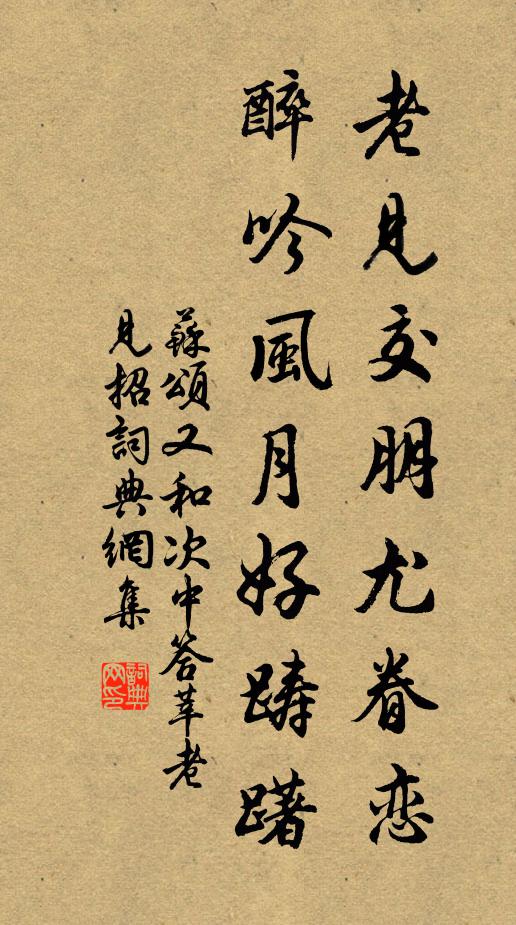 老見交朋尤眷恋
醉吟風月好踌躇
蘇頌又和次中答莘老
見招詞典網集
詞典网印